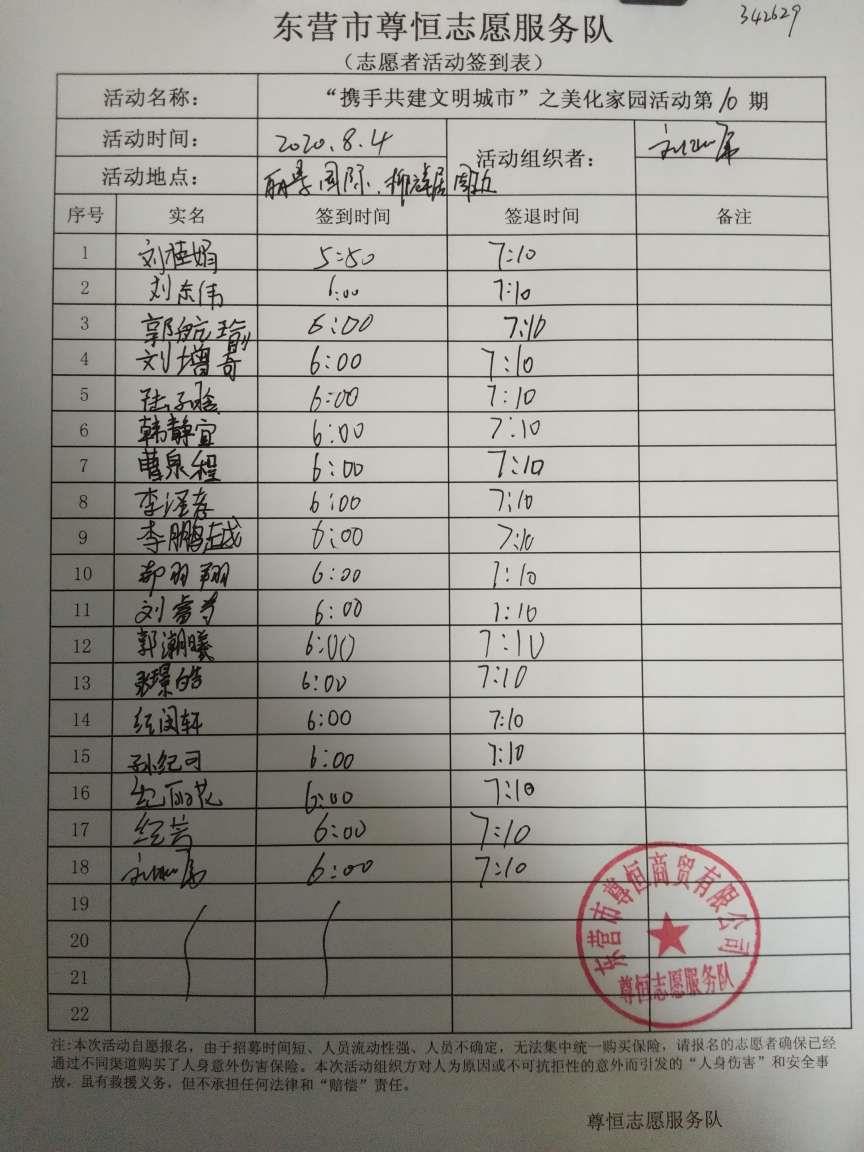 342629
东营市尊恒志愿服务队
（志愿者活动签到表）
活动名称： “携手共建文明城市”之美化家园活动第10期
活动时间： 2020.8.4 活动组织者：
活动地点： 丽景国际、
序号 实名 签到时间 签退时间 备注
1 刘桂娟 5:50 7:10
2 刘东伟 6:00 7:10
3 郭航瑜 6:00 7:10
4 刘增奇 6:00 7:10
5 陆子晗 6:00 7:10
6 韩静宜 6:00 7:10
7 曹泉程 6:00 7:10
8 李泽 6:00 7:10
9 李鹏越 6:00 7:10
10 羽翔 6:00 7:10
11 刘睿 6:00 7:10
12 郭潮曦 6:00 7:10
13 6:00 7:10
14 纪闵轩 6:00 7:10
15 孙纪司 6:00 7:10
16 纪丽花 6:00 7:10
17 纪芸 6:00 7:10
18 6:00 7:10
19
20
21
22
东营市尊恒商贸有限公司
尊恒志愿服务队
注:本次活动自愿报名，由于招募时间短、人员流动性强、人员不确定，无法集中统一购买保险，请报名的志愿者确保已经
通过不同渠道购买了人身意外伤害保险。本次活动组织方对人为原因或不可抗拒性的意外而引发的“人身伤害”和安全事
故，虽有救援义务，但不承担任何法律和“赔偿”责任。
尊恒志愿服务队